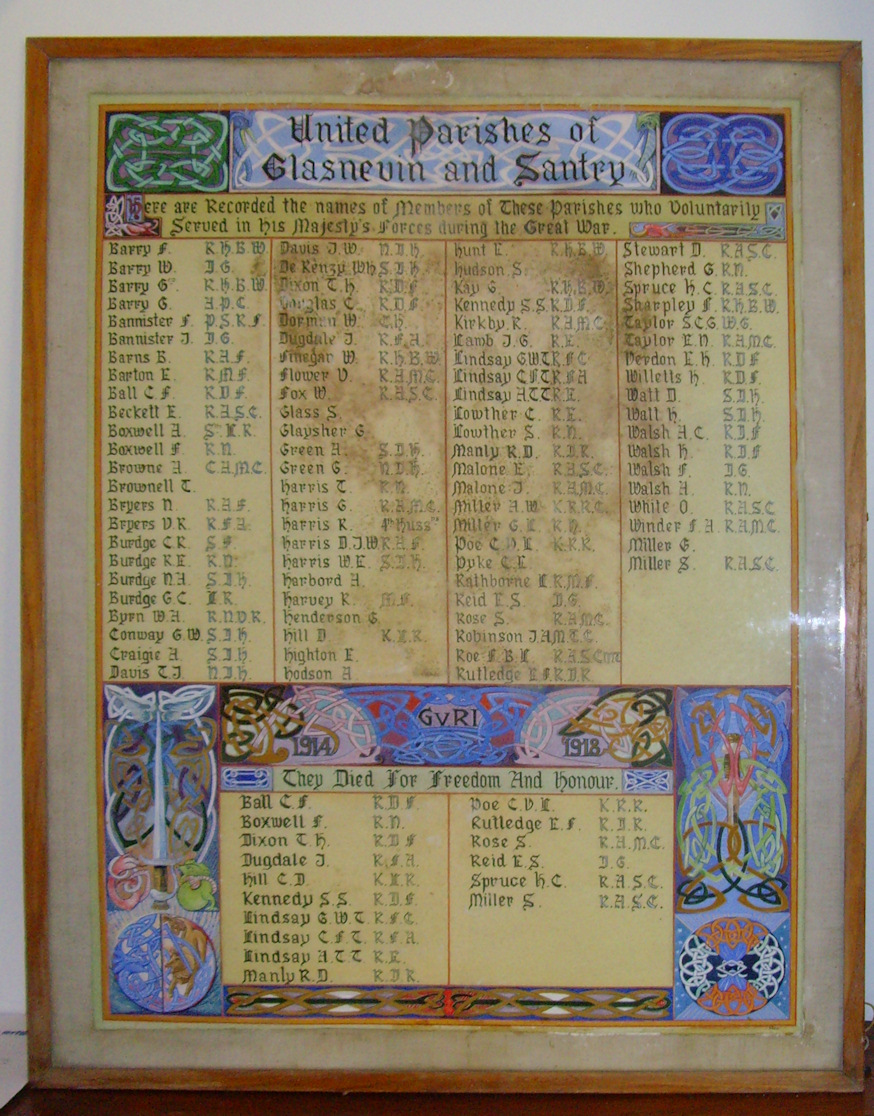 United Parishes of
Glasnevin and Santry
Here are Recorded the names of Members of These Parishes who Voluntarily
Served in His Majesty's Forces during the Great War.
Barry F. R.H.B.W.
Barry W. I.G.
Barry G. R.H.B.W.
Barry G. A.P.C.
Bannister F. P.S.R.F.
Bannister J. I.G.
Barns B. R.A.F.
Barton E. R.M.F.
Ball C.F. R.D.F.
Beckett E. R.A.S.C.
Boxwell A. S.L.R.
Boxwell F. R.N.
Browne A. C.A.M.C.
Brownell T.
Bryers N. R.A.F.
Bryers V.R. R.F.A.
Burdge C.R. S.F.
Burdge R.E. R.D.
Burdge N.A. S.I.H.
Burdge G.C. I.R.
Byrn W.A. R.N.V.R.
Conway G.W. S.I.H.
Craigie A. S.I.H.
Davis T.J. N.I.H.
Davis J.W. N.I.H.
De Renzy WH S.I.H.
Dixon T.H. R.D.F.
Douglas C. R.D.F.
Dorman W. C.H.
Dugdale J. R.F.A.
Finegar W. R.H.B.W.
Flower V. R.A.M.C.
Fox W. R.A.S.C.
Glass S.
Glaysher G.
Green A. S.I.H.
Green G. N.I.H.
Harris T. R.N.
Harris G. R.A.M.C.
Harris R. 4th Huss
Harris D.J.W. R.A.F.
Harris W.E. S.I.H.
Harbord A.
Harvey R. M.F.
Henderson G.
Hill D. K.E.R.
Highton E.
Hodson A.
Hunt E. R.H.B.W.
Hudson S.
Kay G. R.H.B.W.
Kennedy S.S. R.D.F.
Kirkby R. R.A.M.C.
Lamb J.G. R.E.
Lindsay G.W.T. R.F.C.
Lindsay C.F.T. R.F.A.
Lindsay A.T.T. R.E.
Lowther C. R.E.
Lowther S. R.N.
Manly R.D. R.I.R.
Malone E. R.A.S.C.
Malone J. R.A.M.C.
Miller A.W. K.R.R.C.
Miller G.L. R.H.
Poe C.V.L. K.R.R.
Pyke C.E.
Rathborne L R.M.F.
Reid E.S. I.G.
Rose S. R.A.M.C.
Robinson J.A. M.T.C.
Roe F.B.L. R.A.S.C.
Rutledge E.F. R.I.R.
Stewart D. R.A.S.C.
Shepherd G. R.N.
Spruce H.C. R.A.S.C.
Sharpley F. R.H.B.W.
Taylor S.C.G. W.G.
Taylor E.N. R.A.M.C.
Verdon E.H. R.D.F
Willetts H. R.D.F.
Watt D. S.I.H.
Watt H. S.I.H.
Walsh A.C. R.I.F
Walsh H. R.D.F
Walsh F. I.G.
Walsh A. R.N.
White O. R.A.S.C
Winder F.A. R.A.M.C.
Miller G.
Miller S. R.A.S.C.
GVRI
1914 1918
They Died For Freedom And Honour.
Ball C.F. R.D.F.
Boxwell F. R.N.
Dixon T.H. R.D.F
Dugdale J. R.F.A.
Hill C.D. K.E.R.
Kennedy S.S. R.D.F.
Lindsay G.W.T. R.F.C.
Lindsay C.F.T. R.F.A.
Lindsay A.T.T. R.E.
Manly R.D. R.I.R.
Poe C.V.L. K.R.R.
Rutledge E.F. R.I.R.
Rose S. R.A.M.C.
Reid E.S. I.G.
Spruce H.C. R.A.S.C.
Miller S. R.A.S.C.